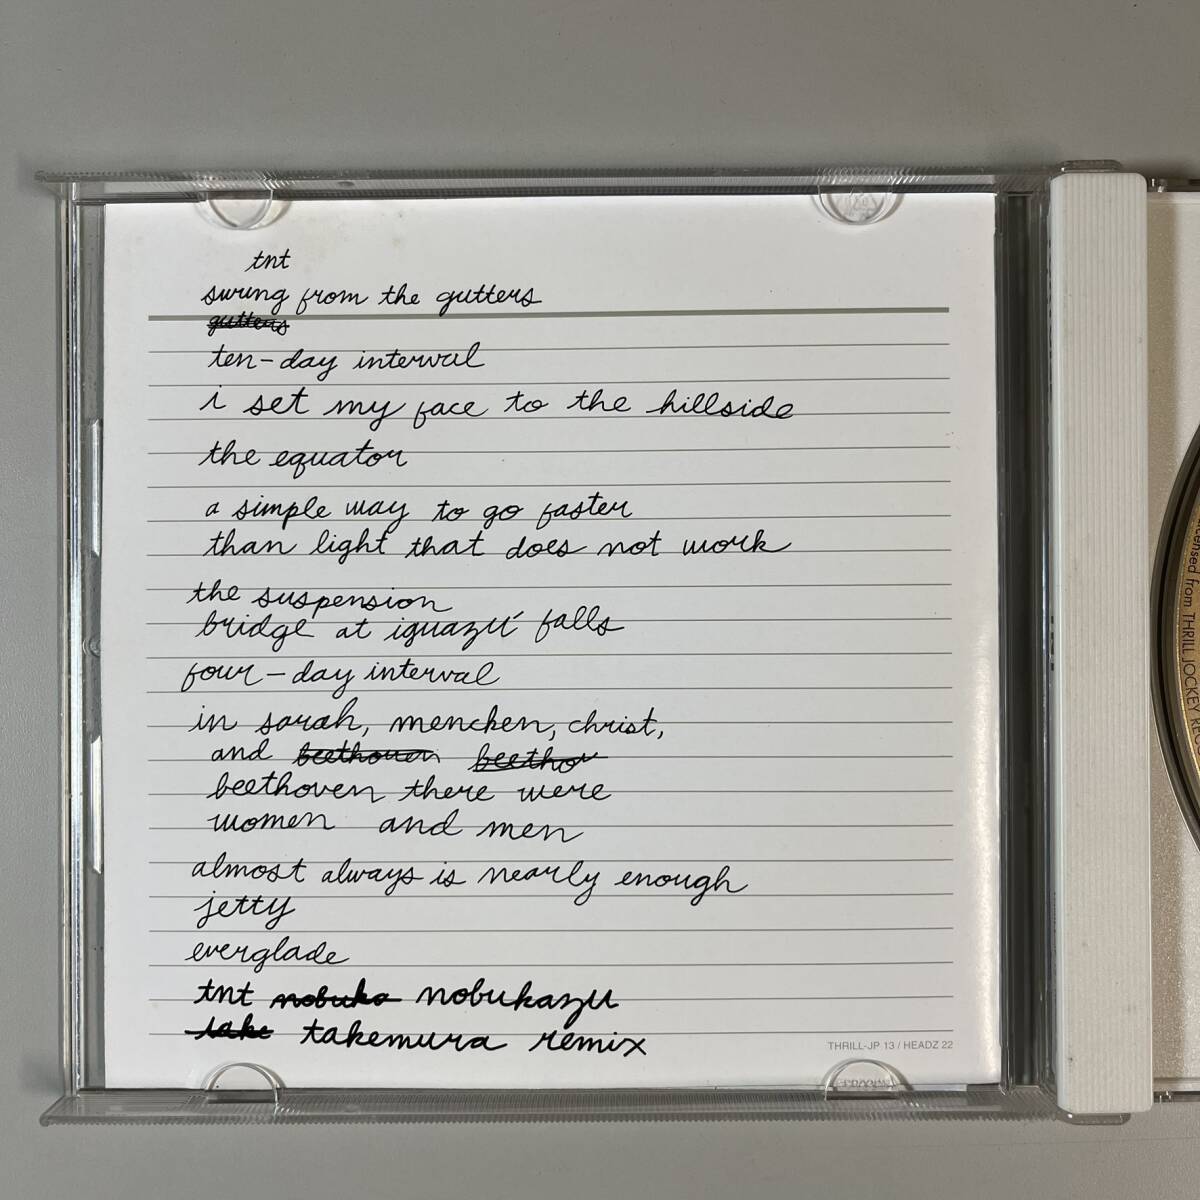 tnt
swung from the gutters
gutters
ten-day interval
i set my face to the hillside
the equator
a simple way to go faster
than light that does not work
the suspension
bridge at iguazú falls
four-day interval
in sarah, mencken, christ,
and beethoven beethov
beethoven there were
women and men
almost always is nearly enough
jetty
everglade
tnt nobuka nobukazu
take takemura remix
THRILL-JP 13 / HEADZ 22
censed from THRILL JOCKEY REC